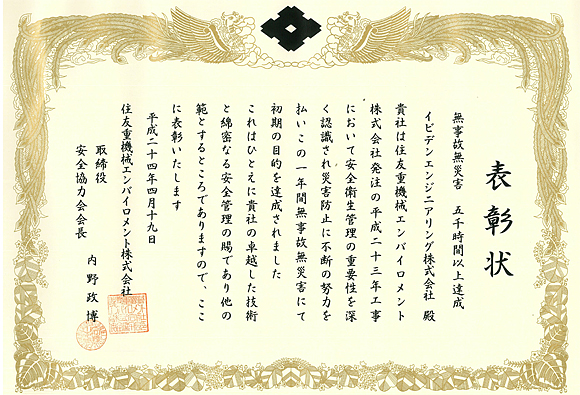 表彰状
無事故無災害 五千時間以上達成
イビデンエンジニアリング株式会社 殿
貴社は住友重機械エンバイロメント
株式会社発注の平成二十三年工事
において安全衛生管理の重要性を深
く認識され災害防止に不断の努力を
払いこの一年間無事故無災害にて
初期の目的を達成されました
これはひとえに貴社の卓越した技術
と綿密なる安全管理の賜であり他の
範とするところでありますので、ここ
に表彰いたします
平成二十四年四月十九日
住友重機械エンバイロメント株式会社
取締役
安全協力会会長
内野政博